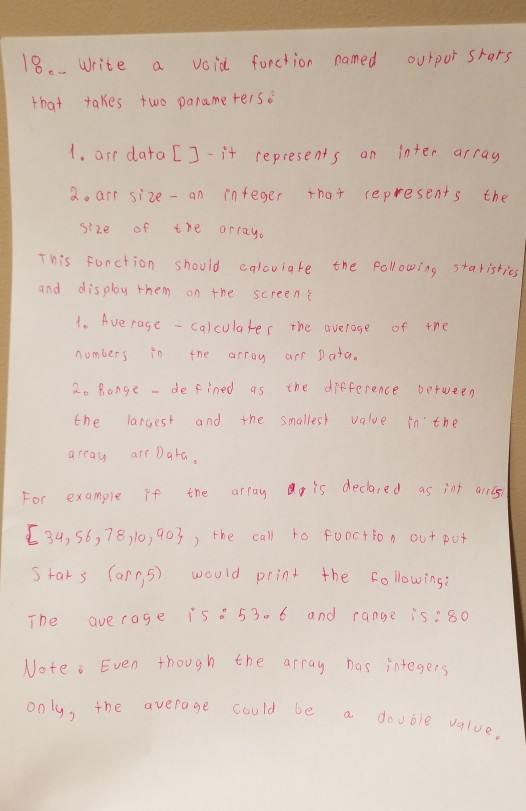 18.- Write a void function named output stats
that takes two parameters:
1. arr data [ ] - it represents an inter array
2. arr size - an integer that represents the
size of the array.
This function should calculate the following statistics
and display them on the screen:
1. Average - calculates the average of the
numbers in the array arr Data.
2. Range - defined as the difference between
the largest and the smallest value in the
array arr Data.
For example if the array is declared as int arr[5]
{34,56,78,10,90}, the call to function out put
Stats (arr,5) would print the following:
The average is: 53.6 and range is: 80
Note: Even though the array has integers
only, the average could be a double value.